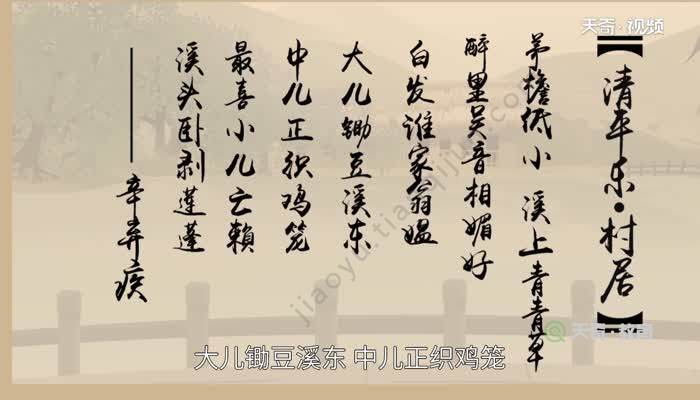 天奇·视频
【清平乐·村居】
茅檐低小 溪上青青草
醉里吴音相媚好
白发谁家翁媪
大儿锄豆溪东
中儿正织鸡笼
最喜小儿亡赖
溪头卧剥莲蓬
——辛弃疾
jiaoyu.tianqijun.com
天奇·教育
大儿锄豆溪东 中儿正织鸡笼